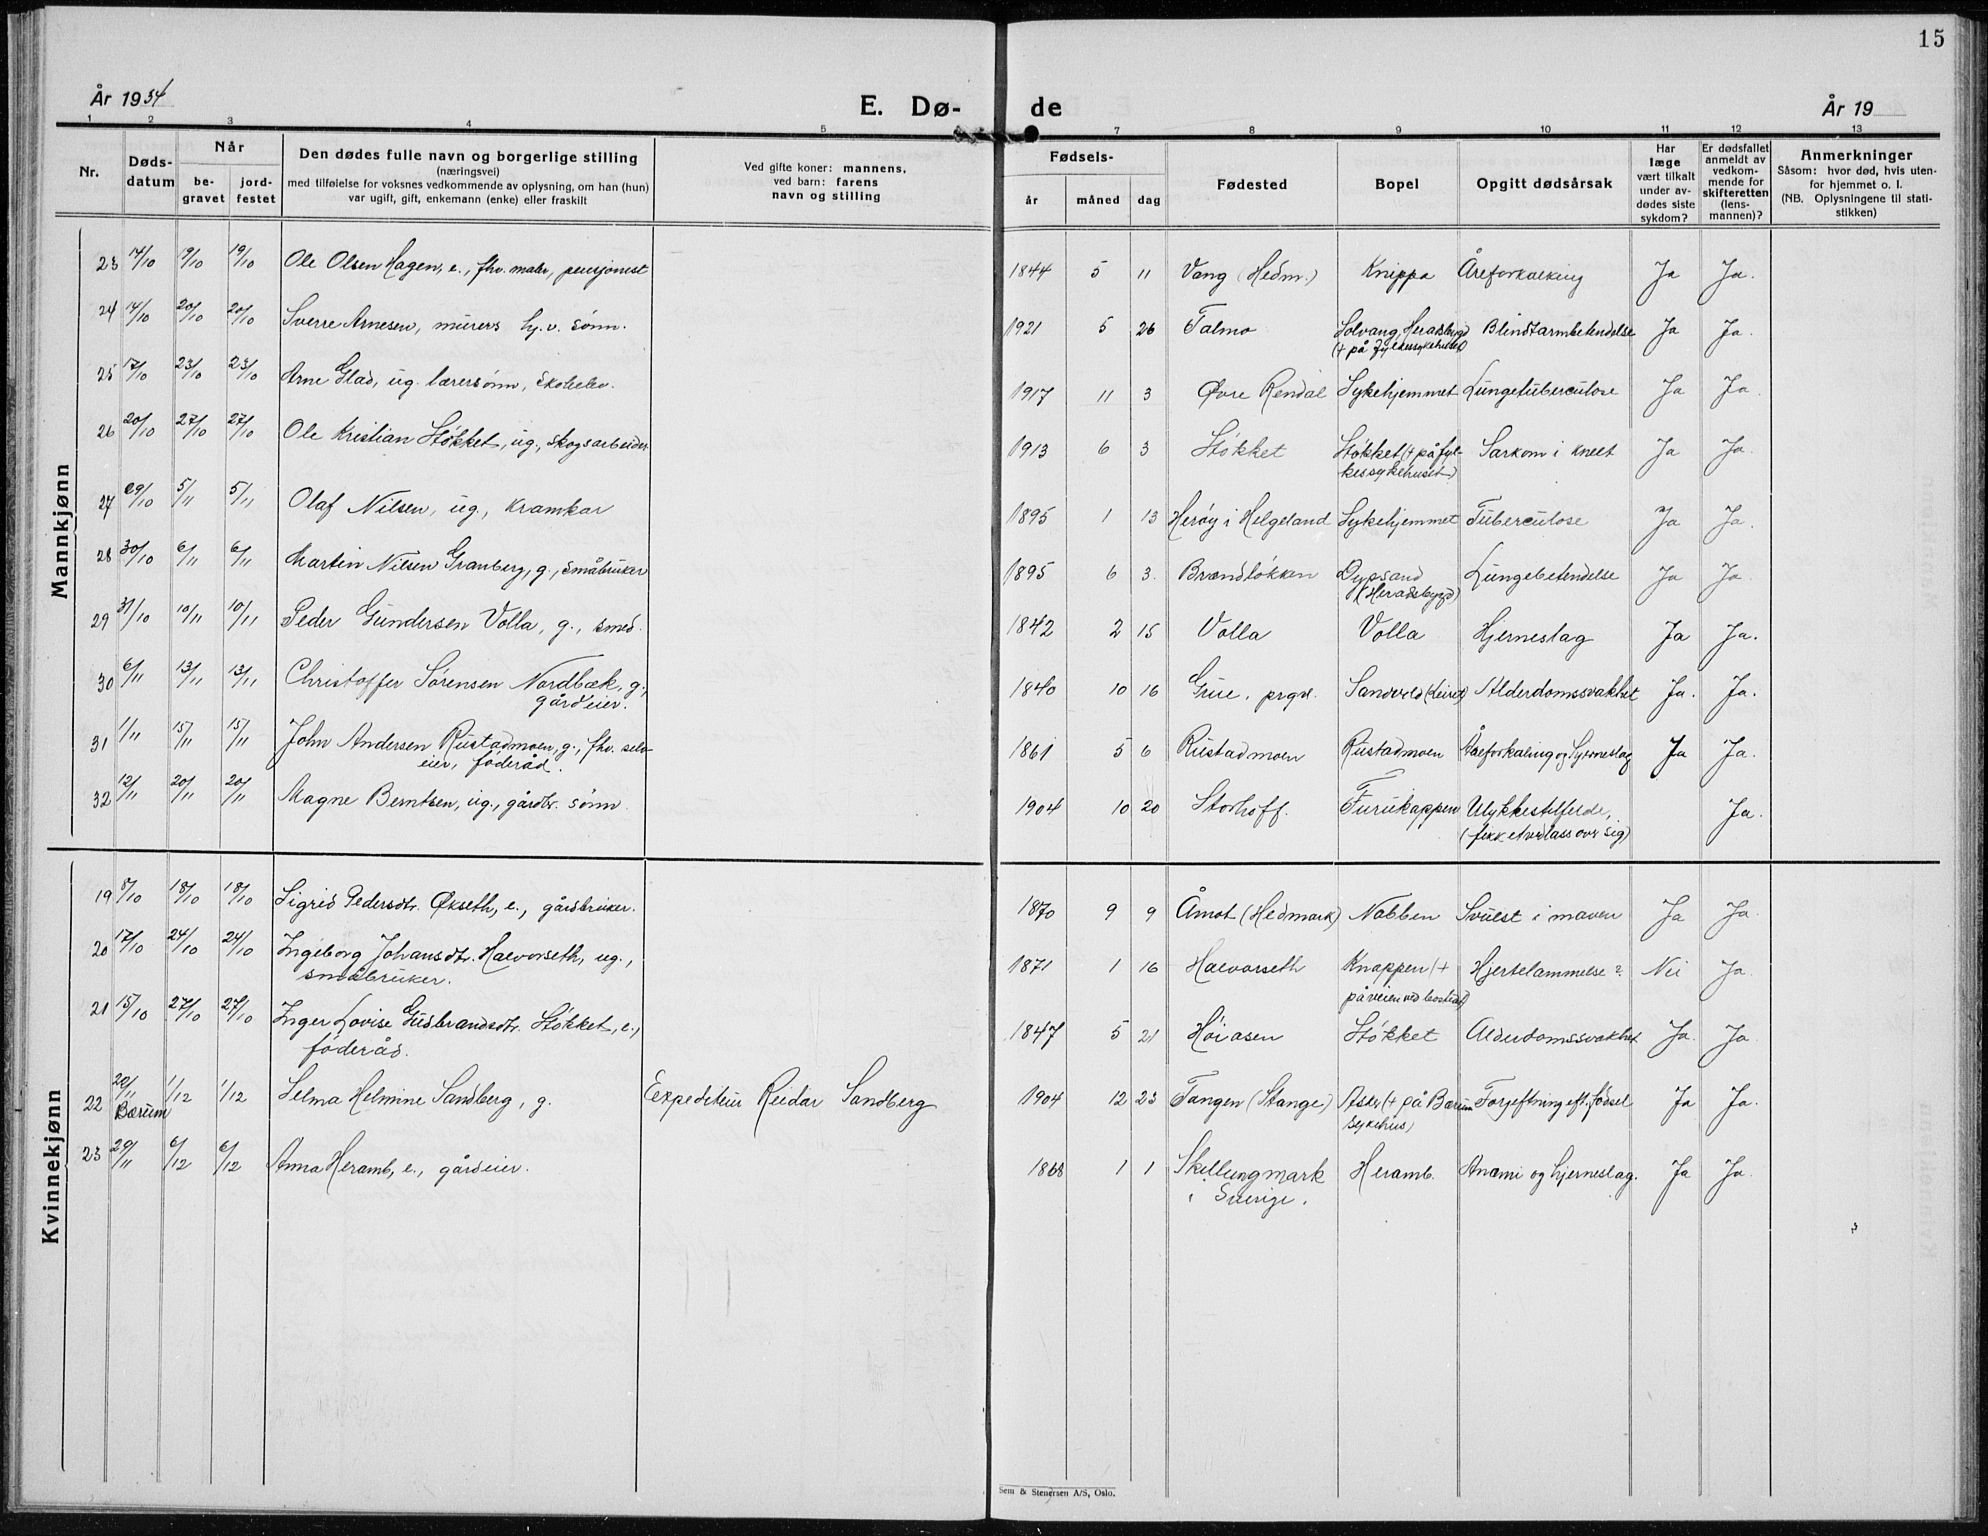 15
År 1934
E. Dø-
de
År 19
1 2 3 4 5 7 8 9 10 11 12 13
Nr.
Døds-
datum
Når
be-
gravet
jord-
festet
Den dødes fulle navn og borgerlige stilling
(næringsvei)
med tilføielse for voksnes vedkommende av oplysning, om han (hun)
var ugift, gift, enkemann (enke) eller fraskilt
Ved gifte koner: mannens,
ved barn: farens
navn og stilling
Fødsels-
år måned dag
Fødested
Bopel
Opgitt dødsårsak
Har
læge
vært tilkalt
under av-
dødes siste
sykdom?
Er dødsfallet
anmeldt av
vedkom-
mende for
skifteretten
(lens-
mannen)?
Anmerkninger
Såsom: hvor død, hvis uten-
for hjemmet o. l.
(NB. Oplysningene til stati-
stikken)
Mannkjønn
23 14/10 19/10 19/10 Ole Olsen Hagen, e., fhv. maler, pensjonist 1844 5 11 Vang (Hedm.) Knippa Åreforkalking Ja Ja.
24 14/10 20/10 20/10 Sverre Arnesen, murers hj.v. sønn. 1921 5 26 Talmo Solvang, Heradsbygd Blindtarmbetendelse Ja Ja.
(+ på fylkessykehuset)
25 17/10 23/10 23/10 Arne Glad, ug. lærersønn, skoleelev. 1917 11 3 Øvre Rendal Sykehjemmet Lungetuberculose Ja Ja.
26 20/10 27/10 27/10 Ole Kristian Støkket, ug., skogsarbeider 1913 6 3 Støkket Støkket (+ på fyl- Sarkom i kneet Ja Ja.
kessykehuset)
27 29/10 5/11 5/11 Olaf Nilsen, ug., kramkar 1895 1 13 Herøy i Helgeland Sykehjemmet Tuberculose Ja Ja.
28 30/10 6/11 6/11 Martin Nilsen Granberg, g., småbruker 1895 6 3. Brændløkken Dypsand Lungebetendelse Ja Ja.
(Heradsbygd)
29 31/10 10/11 10/11 Peder Gundersen Volla, g., smed. 1842 2 15 Volla Volla Hjerneslag Ja Ja.
30 6/11 13/11 13/11 Christoffer Sørensen Nordbæk, g., 1840 10 16 Grue. prgd. Sandvold (Leiret) Alderdomssvakhet Ja. Ja.
gårdeier.
31 1/11 15/11 15/11 John Andersen Rustadmoen, g., fhv. selv- 1861 5 6 Rustadmoen Rustadmoen Åreforkalking og hjerneslag Ja Ja.
eier, føderåd.
32 12/11 20/11 20/11 Magne Berntsen, ug., gårdbr. sønn. 1904 10 20 Storhoff. Furukappen Ulykkestilfelde, Ja.
(fikk et vedlass over sig)
Kvinnekjønn
19 8/10 18/10 18/10 Sigrid Pedersdtr. Økseth, e., gårdbruker. 1870 9 9 Åmot (Hedmark) Nabben Svulst i maven Ja Ja
20 17/10 24/10 24/10 Ingeborg Johansdtr. Halvorseth, ug., 1871 1 16 Halvorseth Knappen (+ Hjertelammelse? Nei Ja
småbruker. på veien ved bostedet)
21 15/10 27/10 27/10 Inger Lovise Gudbrandsdtr. Støkket, e., 1847 5 21 Høiåsen Støkket Alderdomssvakhet Ja. Ja
føderåd.
22 20/11 1/12 1/12 Selma Helmine Sandberg, g. Expediteur Reidar Sandberg 1904 12 23 Tangen (Stange) Asker (+ på Bærum Forgiftning eft. fødsel Ja Ja.
Bærum sykehus)
23 29/11 6/12 6/12 Anna Heramb, e., gårdeier. 1868 1 1 Skillingmark Heramb. Anæmi og hjerneslag. Ja Ja.
i Sverige.
Sem & Stenersen A/S, Oslo.